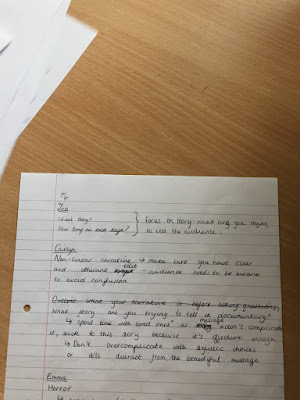 What story?
How long on each stage? } focus on story - what are you trying
to tell the audience.
Caitlyn
Non-linear narrative → make sure you have clear
and obvious edit - audience needs to be aware
to avoid confusion
Outline what your narrative is before asking questions,
what story are you trying to tell in documentary?
↳ spend time with loved ones as message don't complicate
it, stick to this story because it's effective enough
↳ Don't overcomplicate with stylistic choices
or will distract from the beautiful message
Emma
Horror